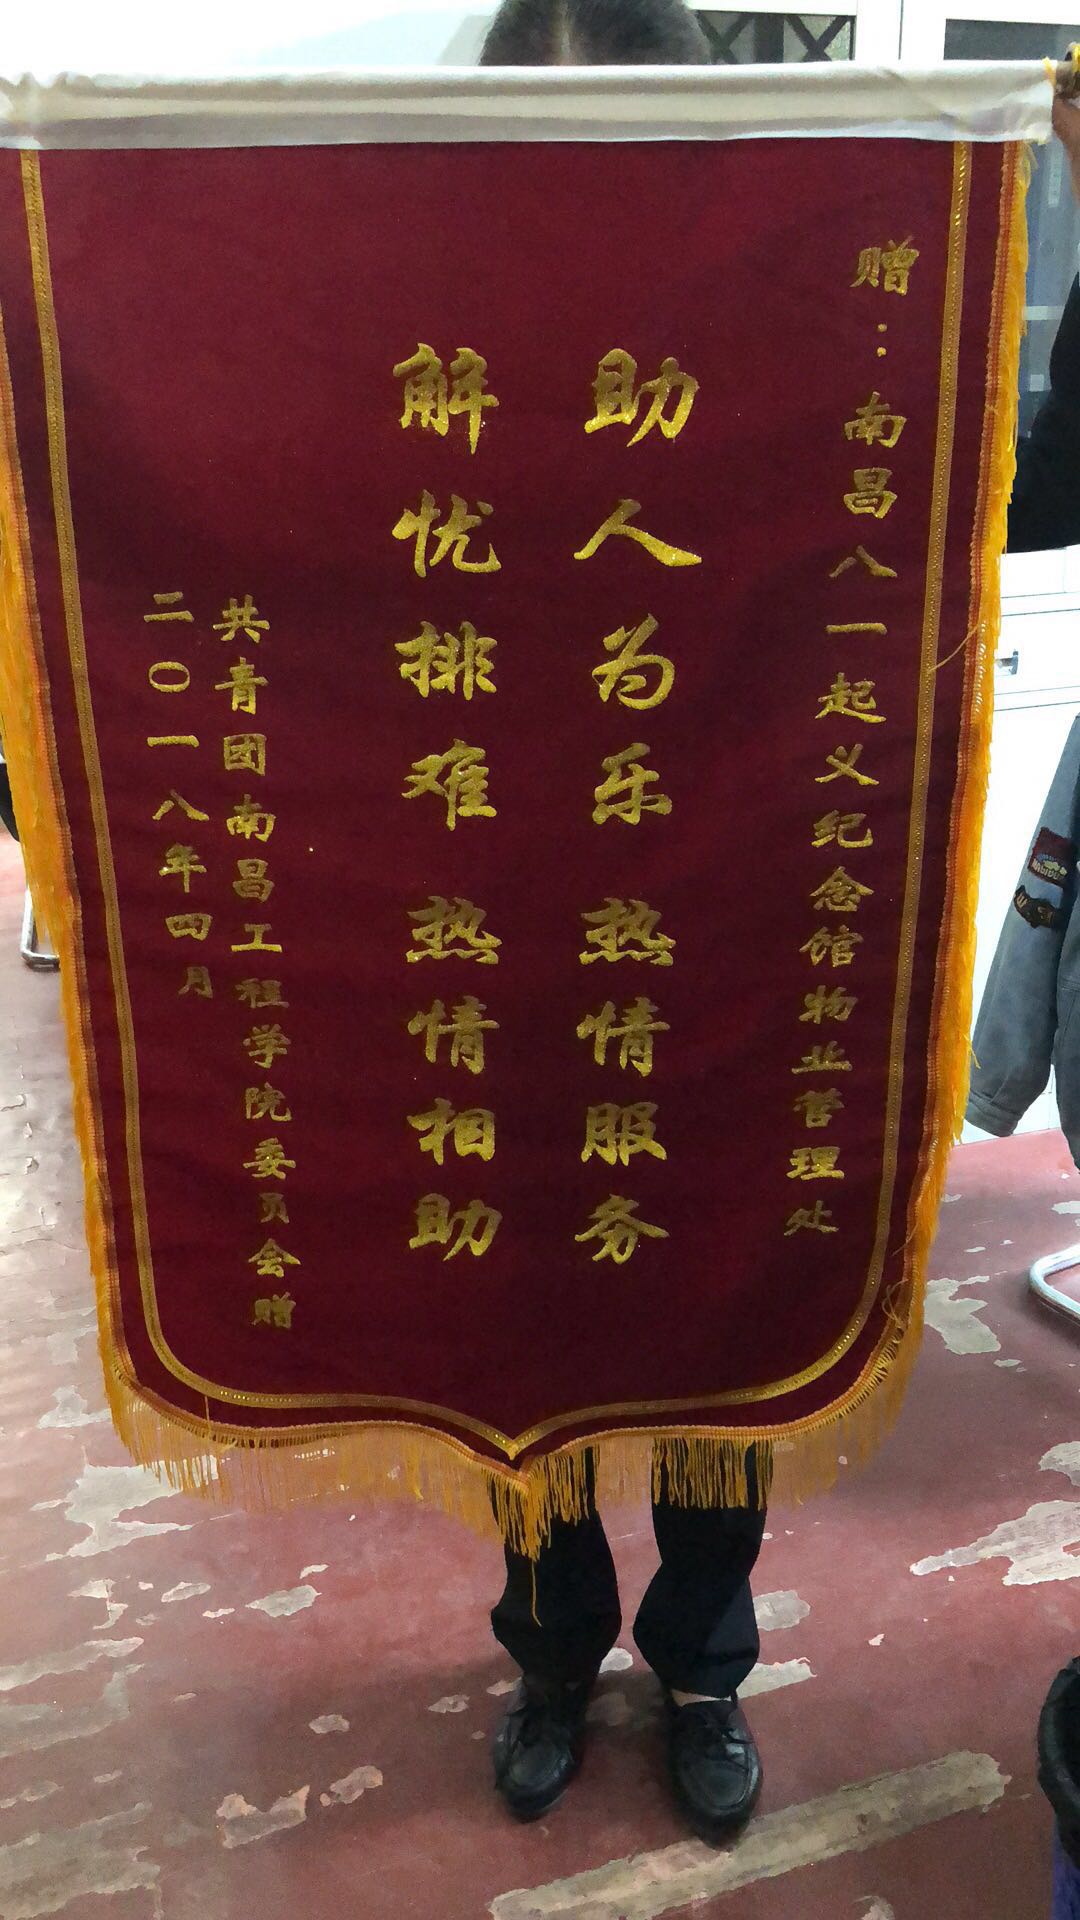 赠：南昌八一起义纪念馆物业管理处
助人为乐 热情服务
解忧排难 热情相助
共青团南昌工程学院委员会赠
二〇一八年四月